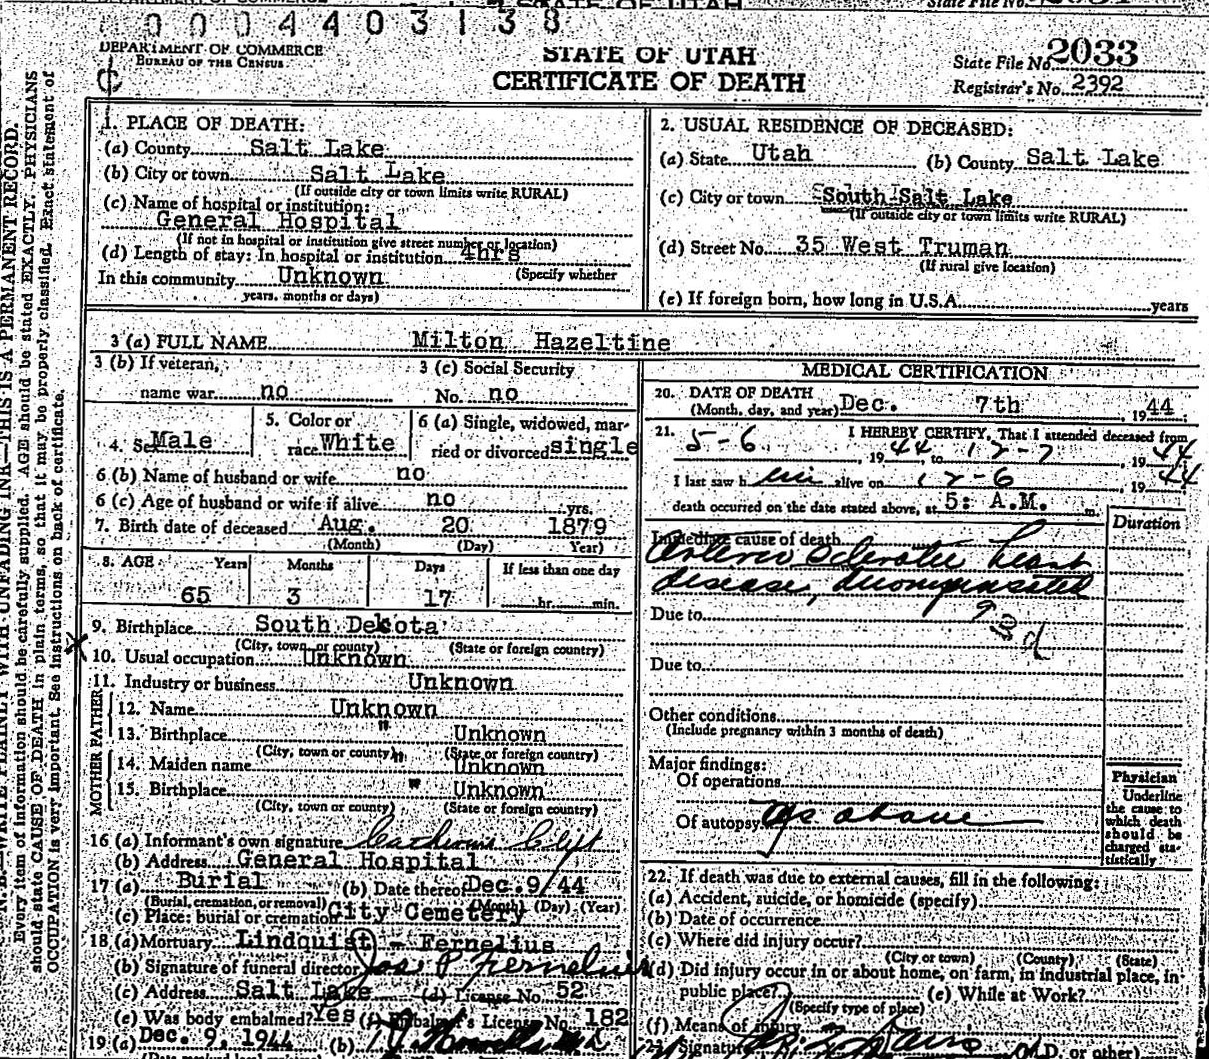 0004403138
STATE OF UTAH
State File No. 2031
DEPARTMENT OF COMMERCE
BUREAU OF THE CENSUS
STATE OF UTAH
CERTIFICATE OF DEATH
State File No. 2033
Registrar's No. 2392
N. B.—WRITE PLAINLY WITH UNFADING INK—THIS IS A PERMANENT RECORD.
Every item of information should be carefully supplied. AGE should be stated EXACTLY. PHYSICIANS
should state CAUSE OF DEATH in plain terms, so that it may be properly classified. Exact statement of
OCCUPATION is very important. See instructions on back of certificate.
1. PLACE OF DEATH:
(a) County Salt Lake
(b) City or town Salt Lake
(If outside city or town limits write RURAL)
(c) Name of hospital or institution:
General Hospital
(If not in hospital or institution give street number or location)
(d) Length of stay: In hospital or institution 4hrs
(Specify whether
In this community Unknown
years, months or days)
2. USUAL RESIDENCE OF DECEASED:
(a) State Utah (b) County Salt Lake
(c) City or town South Salt Lake
(If outside city or town limits write RURAL)
(d) Street No. 35 West Truman
(If rural give location)
(e) If foreign born, how long in U.S.A. years
3 (a) FULL NAME Milton Hazeltine
3 (b) If veteran, 3 (c) Social Security
name war no No. no
4. Sex Male 5. Color or race White 6 (a) Single, widowed, married or divorced single
6 (b) Name of husband or wife no
6 (c) Age of husband or wife if alive no yrs.
7. Birth date of deceased Aug. 20 1879
(Month) (Day) Year)
8. AGE Years Months Days If less than one day
65 3 17 hr. min.
9. Birthplace South Dekota
(City, town, or county) (State or foreign country)
10. Usual occupation Unknown
11. Industry or business Unknown
FATHER
12. Name Unknown
13. Birthplace " Unknown
(City, town or county) (State or foreign country)
MOTHER
14. Maiden name " Unknown
15. Birthplace " Unknown
(City, town or county) (State or foreign country)
16 (a) Informant's own signature Catherine Clift
(b) Address General Hospital
17 (a) Burial (b) Date thereof Dec. 9/44
(Burial, cremation, or removal) (Month) (Day) (Year)
(c) Place: burial or cremation City Cemetery
18 (a) Mortuary Lindquist - Fernelius
(b) Signature of funeral director Jos. P Fernelius
(c) Address Salt Lake (d) License No. 52
(e) Was body embalmed? Yes (f) Embalmer's License No. 182
19 (a) Dec. 9, 1944 (b)
MEDICAL CERTIFICATION
20. DATE OF DEATH
(Month, day, and year) Dec. 7th, 1944
21. I HEREBY CERTIFY, That I attended deceased from
5-6, 1944, to 12-7, 1944
I last saw h im alive on 12-6, 1944
death occurred on the date stated above, at 5: A.M. m.
Duration
Immediate cause of death
Arterio Sclerotic heart
disease, decompensated
Due to
Due to
Other conditions
(Include pregnancy within 3 months of death)
Major findings:
Of operations
Of autopsy as above
Physician
Underline
the cause to
which death
should be
charged sta-
tistically
22. If death was due to external causes, fill in the following:
(a) Accident, suicide, or homicide (specify)
(b) Date of occurrence
(c) Where did injury occur?
(City or town) (County) (State)
(d) Did injury occur in or about home, on farm, in industrial place, in
public place? (e) While at Work?
(Specify type of place)
(f) Means of injury
23. Signature (M.D. or other)